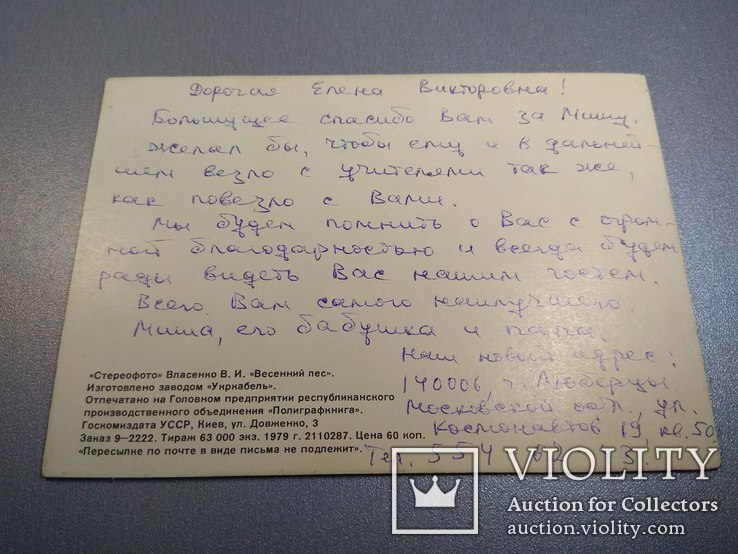 Дорогая Елена Викторовна!
Большущее спасибо Вам за Мишу.
Желал бы, чтобы ему и в дальней-
шем везло с учителями так же,
как повезло с Вами.
Мы будем помнить о Вас с огром-
ной благодарностью и всегда будем
рады видеть Вас нашим гостем.
Всего Вам самого наилучшего.
Миша, его бабушка и папа.
Наш новый адрес:
140006, г. Люберцы
Московской обл., ул.
Космонавтов 19 кв. 50
Тел. 554
«Стереофото» Власенко В. И. «Весенний лес».
Изготовлено заводом «Укрнабель».
Отпечатано на Головном предприятии республиканского
производственного объединения «Полиграфкнига».
Госкомиздата УССР, Киев, ул. Довженко, 3
Заказ 9—2222. Тираж 63 000 экз. 1979 г. 2110287. Цена 60 коп.
«Пересылке по почте в виде письма не подлежит».
VIOLITY
Auction for Collectors
auction.violity.com